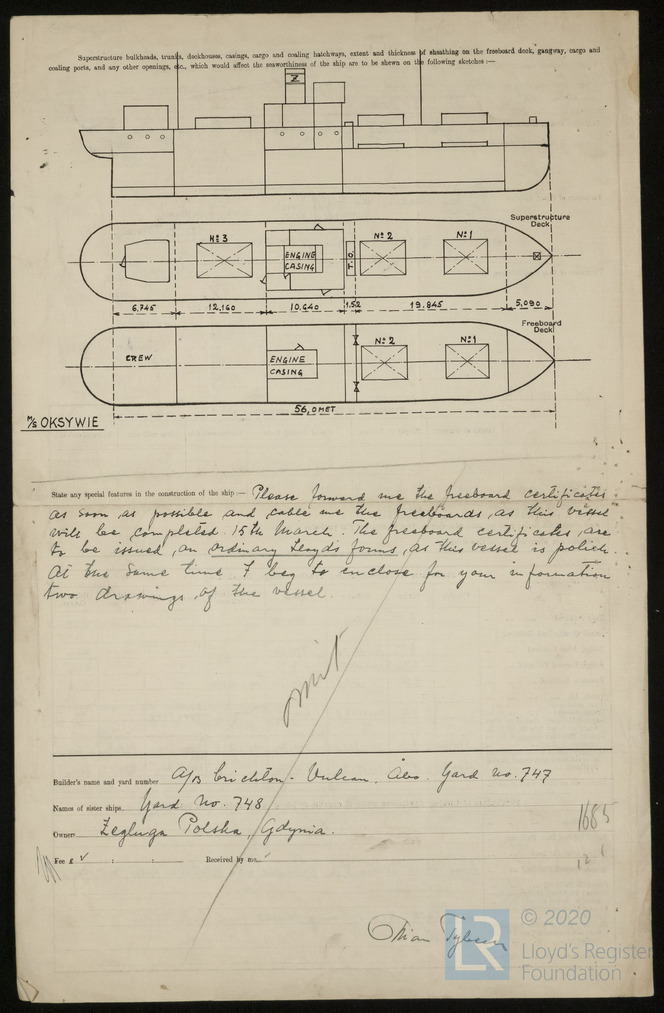 Superstructure bulkheads, trunks, deckhouses, casings, cargo and coaling hatchways, extent and thickness of sheathing on the freeboard deck, gangway, cargo and
coaling ports, and any other openings, etc., which would affect the seaworthiness of the ship are to be shewn on the following sketches :—
Z
Superstructure
Deck
Nº 3
Nº 2
Nº 1
ENGINE
CASING
T.O.
6,745 12,160 10,640 1,52 19,845 5,090
Freeboard
Deck
CREW
ENGINE
CASING
Nº 2
Nº 1
56,0 MET
M/S OKSYWIE
State any special features in the construction of the ship :— Please forward me the freeboard certificates
as soon as possible and cable me the freeboards, as this vessel
will be completed 15th March. The freeboard certificates are
to be issued on ordinary Lloyds forms, as this vessel is polish.
At the same time I beg to enclose for your information
two drawings of the vessel.
omit
Builder's name and yard number A/B Crichton - Vulcan. Åbo. Yard no. 747
Names of sister ships. Yard no. 748
1685
Owner Zegluga Polska, Gdynia.
Fee £ : : Received by me,
© 2020
LR
Lloyd's Register
Foundation